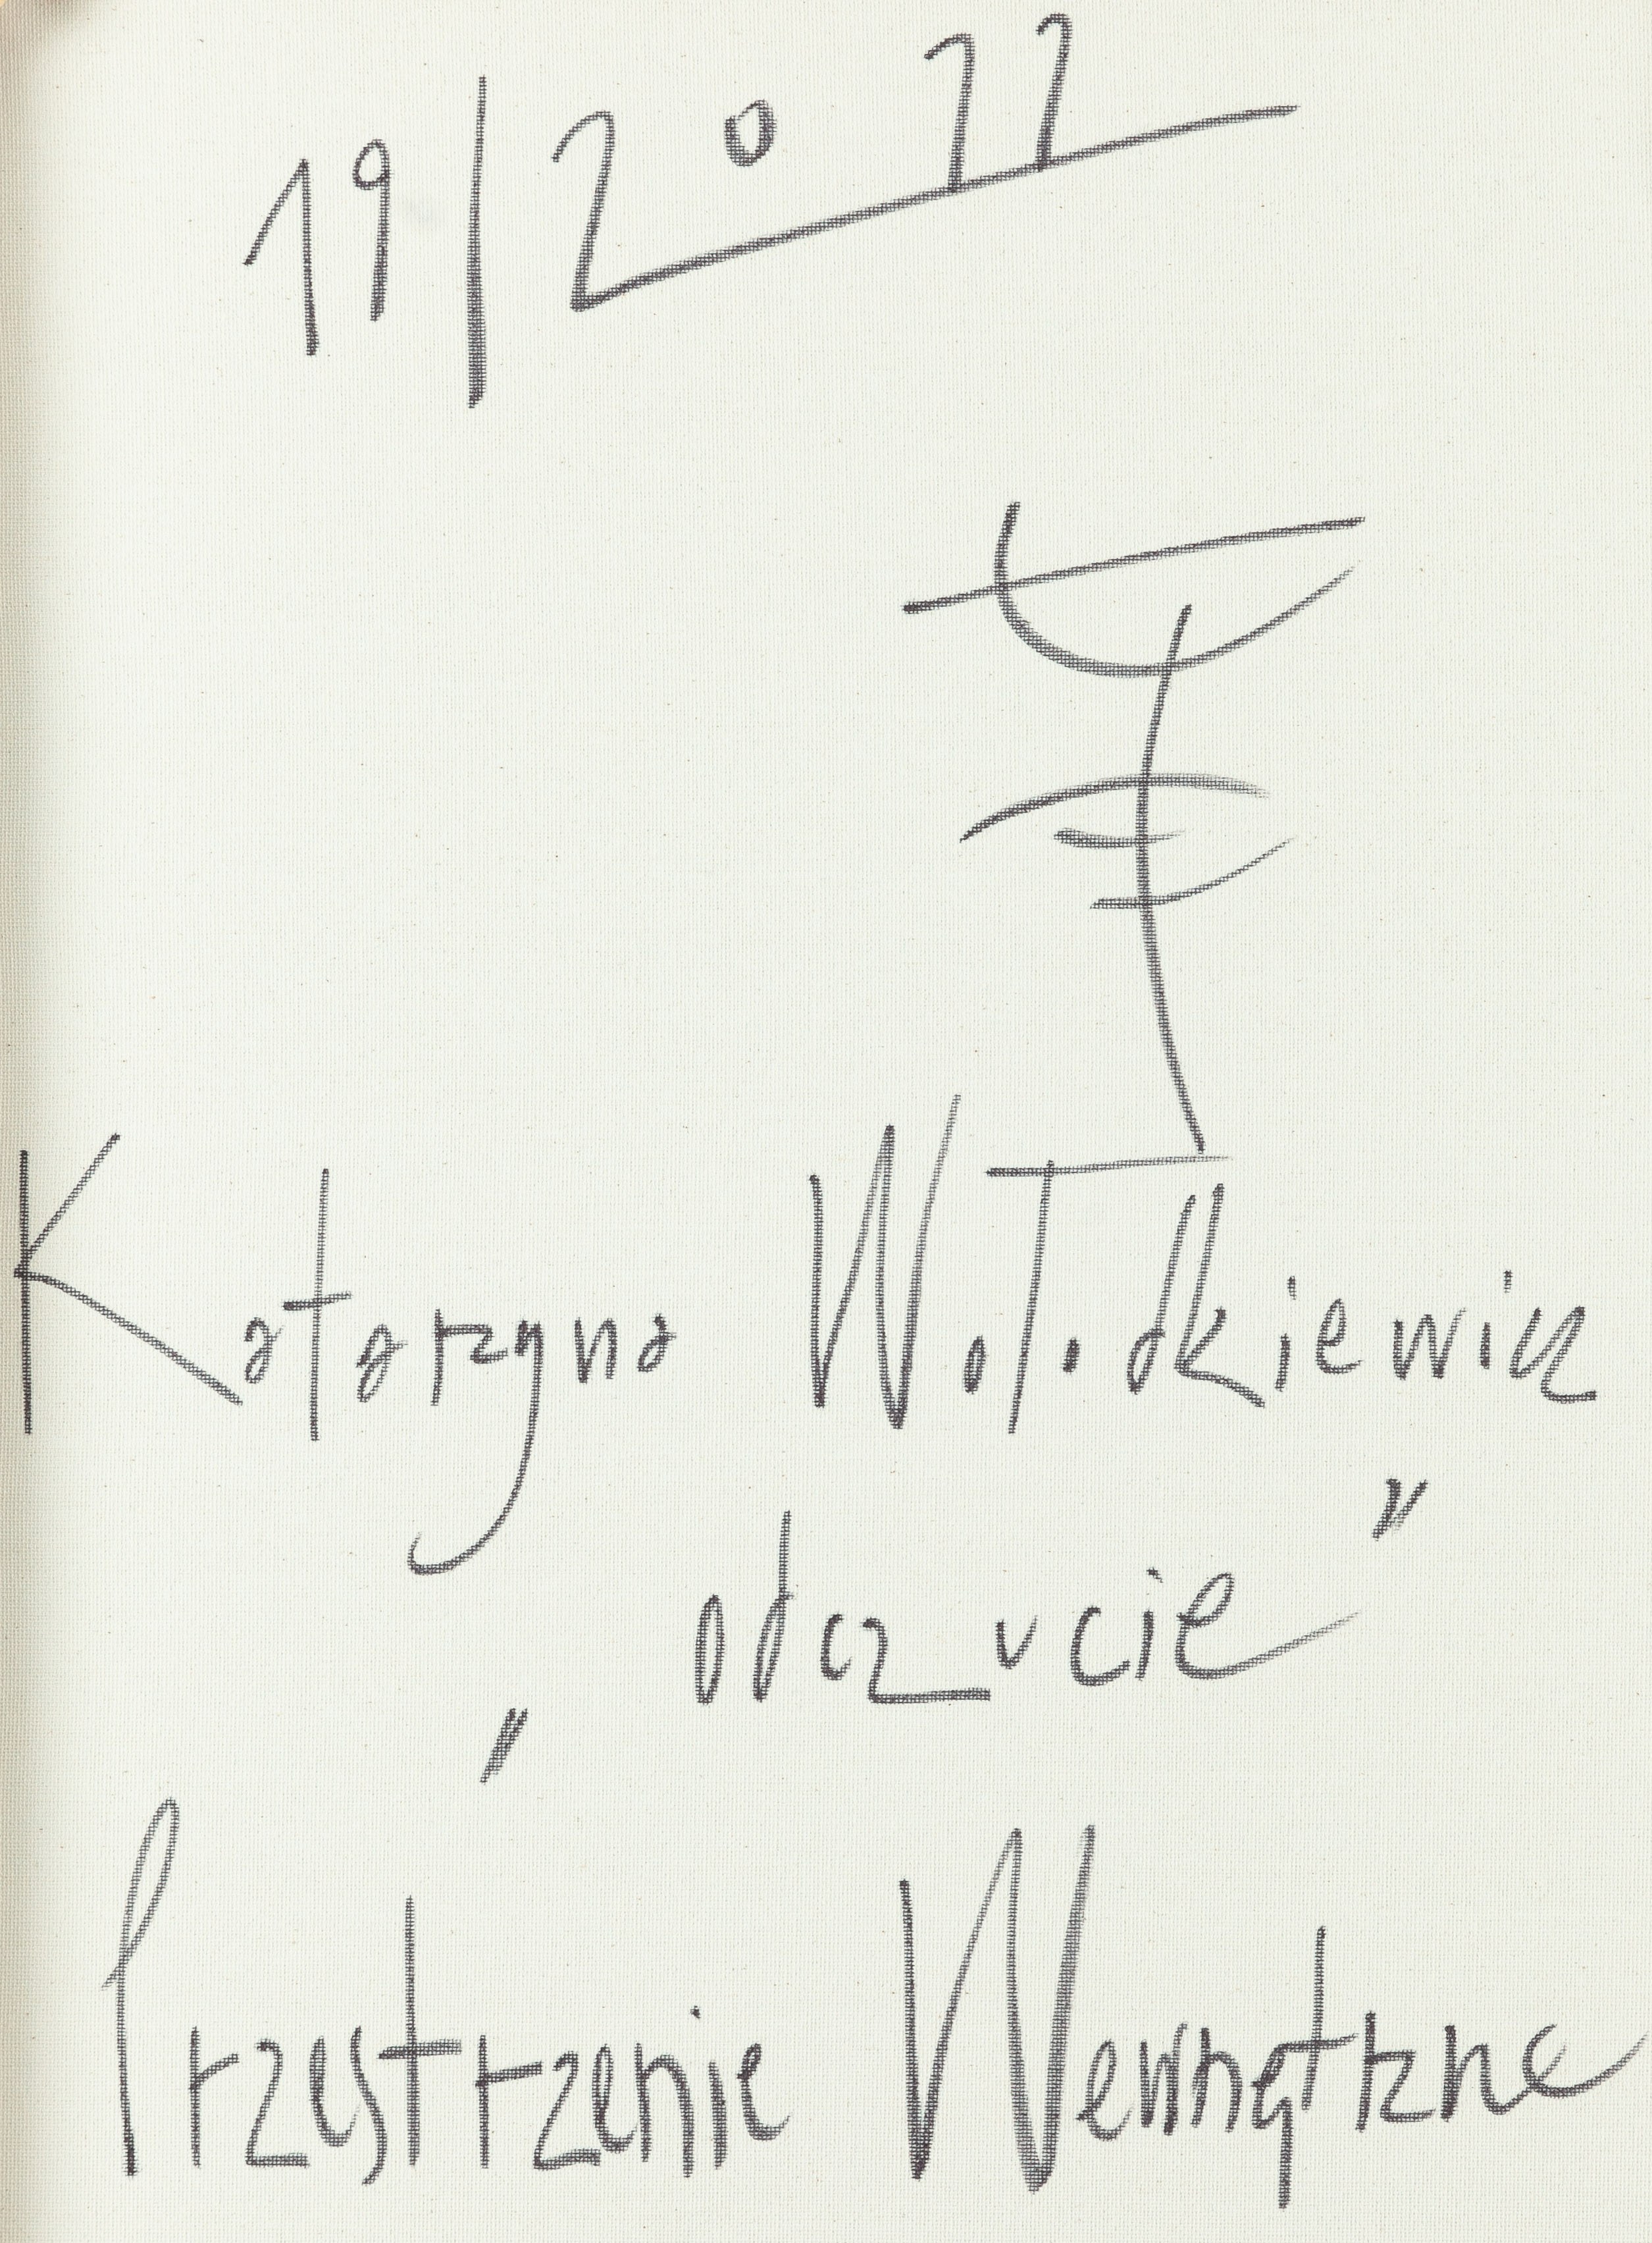 19/2022
Katarzyna Wołodkiewicz
„odczucie”
Przestrzenie Wewnętrzne